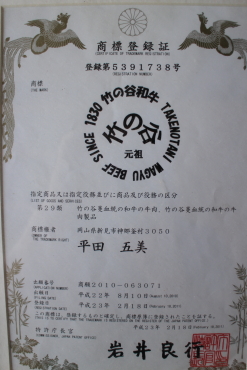 商標登録証
(CERTIFICATE OF TRADEMARK REGISTRATION)
登録第5391738号
(REGISTRATION NUMBER)
商標
(THE MARK)
SINCE 1830 竹の谷和牛 TAKENOTANI WAGYU BEEF
竹の谷
元祖
指定商品又は指定役務並びに商品及び役務の区分
(LIST OF GOODS AND SERVICES)
第29類 竹の谷蔓血統の和牛の牛肉、竹の谷蔓血統の和牛の牛肉製品
商標権者
(OWNER OF THE TRADEMARK RIGHT)
岡山県新見市神郷釜村3050
平田 五美
出願番号
(APPLICATION NUMBER)
商願2010-063071
出願日
(FILING DATE)
平成22年 8月10日
登録日
平成23年 2月18日
この商標は、登録するものと確定し、商標原簿に登録されたことを証する。
平成23年 2月18日
特許庁長官
岩井良行